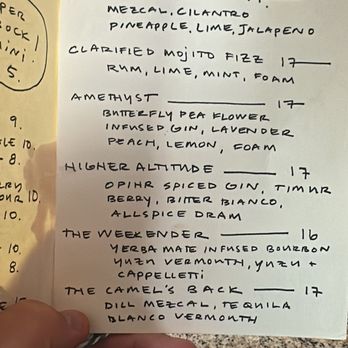 PER
OCK!
INI.
5.
9.
LE 10.
- 8.
RY
OUR 10.
10.
- 10.
8.
MEZCAL, CILANTRO
PINEAPPLE, LIME, JALAPENO
CLARIFIED MOJITO FIZZ 17
RUM, LIME, MINT, FOAM
AMETHYST 17
BUTTERFLY PEA FLOWER
INFUSED GIN, LAVENDER
PEACH, LEMON, FOAM
HIGHER ALTITUDE 17
OPIHR SPICED GIN, TIMUR
BERRY, BITTER BIANCO,
ALLSPICE DRAM
THE WEEKENDER 16
YERBA MATE INFUSED BOURBON
YUZU VERMOUTH, YUZU +
CAPPELLETTI
THE CAMEL'S BACK 17
DILL MEZCAL, TEQUILA
BLANCO VERMOUTH